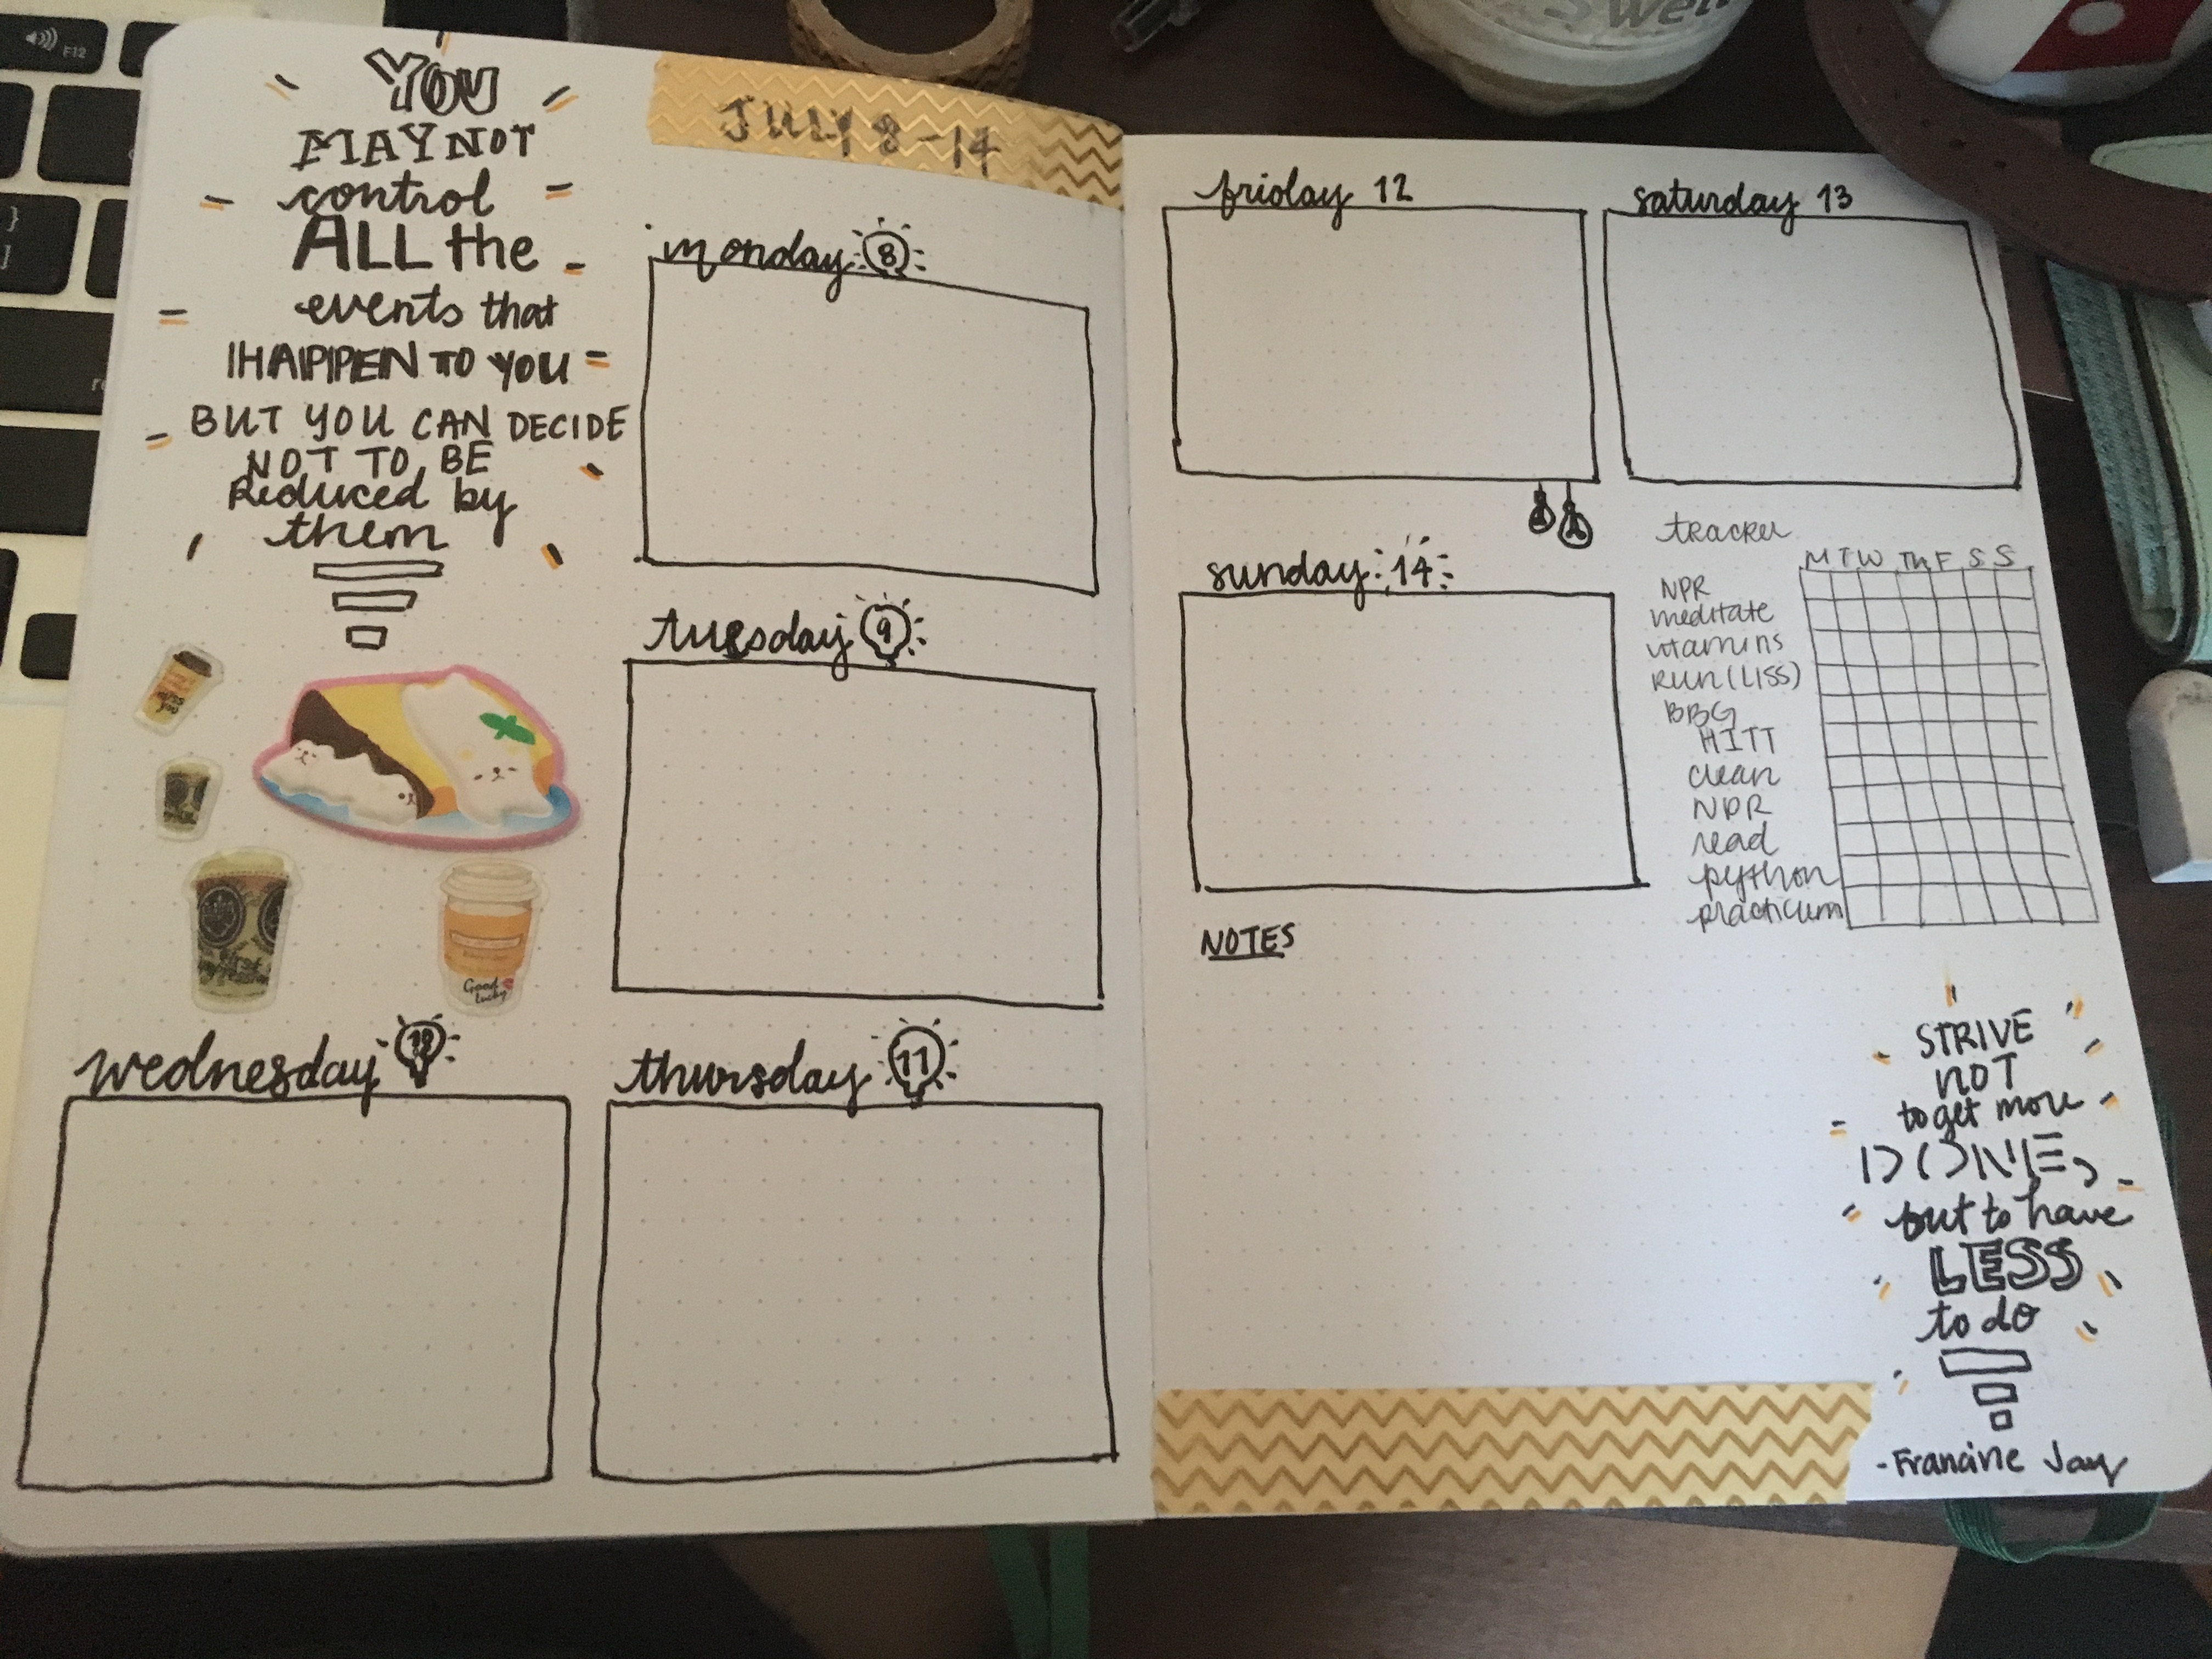 YOU
MAY NOT
control
ALL the
events that
HAPPEN TO YOU
BUT YOU CAN DECIDE
NOT TO BE
Reduced by
them
JULY 8-14
monday 8
tuesday 9
wednesday 10
thursday 11
Good
friday 12
saturday 13
sunday 14
NOTES
tracker
M T W Th F S S
NPR
meditate
vitamins
RUN (LISS)
BBG
HITT
clean
NPR
read
python
practicum
STRIVE
NOT
to get more
DONE
but to have
LESS
to do
-Francine Jay
F12